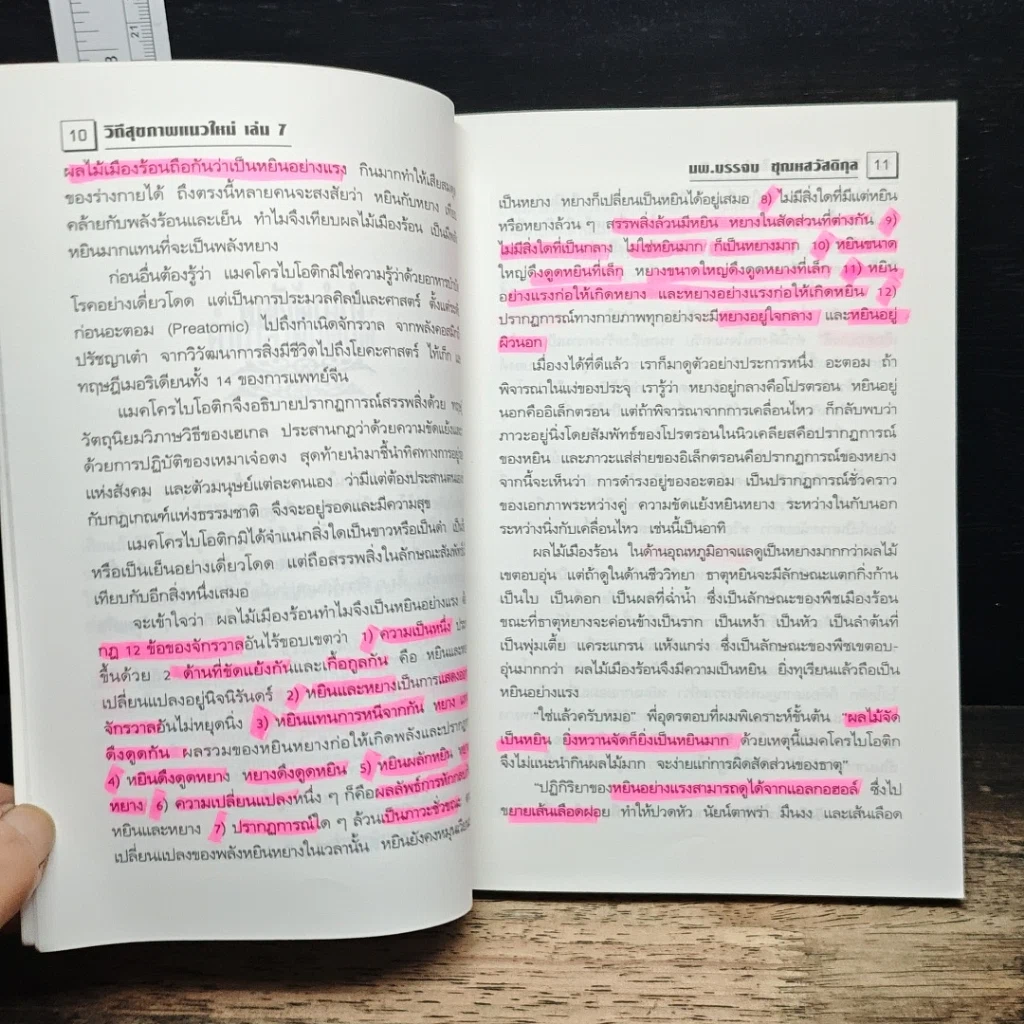 10 วิถีสุขภาพแนวใหม่ เล่ม 7
ผลไม้เมืองร้อนถือกันว่าเป็นหยินอย่างแรง กินมากทำให้เสียสมดุล
ของร่างกายได้ ถึงตรงนี้หลายคนจะสงสัยว่า หยินกับหยาง
คล้ายกับพลังร้อนและเย็น ทำไมจึงเทียบผลไม้เมืองร้อน
หยินมากแทนที่จะเป็นพลังหยาง
ก่อนอื่นต้องรู้ว่า แมคโครไบโอติกมิใช่ความรู้ว่าด้วยอาหารบำบัด
โรคอย่างเดียวโดด แต่เป็นการประมวลศิลป์และศาสตร์ ตั้งแต่
ก่อนอะตอม (Preatomic) ไปถึงกำเนิดจักรวาล จากพลังคอสมิก
ปรัชญาเต๋า จากวิวัฒนาการสิ่งมีชีวิตไปถึงโยคะศาสตร์ ไท้เก็ก
ทฤษฎีเมอริเดียนทั้ง 14 ของการแพทย์จีน
แมคโครไบโอติกจึงอธิบายปรากฏการณ์สรรพสิ่งด้วย
วัตถุนิยมวิภาษวิธีของเฮเกล ประสานกฎว่าด้วยความขัดแย้งและ
ด้วยการปฏิบัติของเหมาเจ๋อตง สุดท้ายนำมาชี้นำทิศทางการอยู่
แห่งสังคม และตัวมนุษย์แต่ละคนเอง ว่ามีแต่ต้องประสานตนเอง
กับกฎเกณฑ์แห่งธรรมชาติ จึงจะอยู่รอดและมีความสุข
แมคโครไบโอติกมิได้จำแนกสิ่งใดเป็นขาวหรือเป็นดำ
หรือเป็นเย็นอย่างเดียวโดด แต่ถือสรรพสิ่งในลักษณะสัมพัทธ์
เทียบกับอีกสิ่งหนึ่งเสมอ
จะเข้าใจว่า ผลไม้เมืองร้อนทำไมจึงเป็นหยินอย่างแรง
กฎ 12 ข้อของจักรวาลอันไร้ขอบเขตว่า 1) ความเป็นหนึ่ง
ขึ้นด้วย 2 ด้านที่ขัดแย้งกันและเกื้อกูลกัน คือ หยินและ
เปลี่ยนแปลงอยู่นิจนิรันดร์ 2) หยินและหยางเป็นการแสดงออก
จักรวาลอันไม่หยุดนิ่ง 3) หยินแทนการหนีจากกัน หยาง
ดึงดูดกัน ผลรวมของหยินหยางก่อให้เกิดพลังและปรากฏ
4) หยินดึงดูดหยาง หยางดึงดูดหยิน 5) หยินผลักหยิน
หยาง 6) ความเปลี่ยนแปลงหนึ่ง ๆ ก็คือผลลัพธ์การหักกลบ
หยินและหยาง 7) ปรากฏการณ์ใด ๆ ล้วนเป็นภาวะชั่วขณะ
เปลี่ยนแปลงของพลังหยินหยางในเวลานั้น หยินยังคงหมุนเวียน
นพ.บรรจบ ชุณหสวัสดิกุล 11
เป็นหยาง หยางก็เปลี่ยนเป็นหยินได้อยู่เสมอ 8) ไม่มีสิ่งใดที่มีแต่หยิน
หรือหยางล้วน ๆ สรรพสิ่งล้วนมีหยิน หยางในสัดส่วนที่ต่างกัน 9)
ไม่มีสิ่งใดที่เป็นกลาง ไม่ใช่หยินมาก ก็เป็นหยางมาก 10) หยินขนาด
ใหญ่ดึงดูดหยินที่เล็ก หยางขนาดใหญ่ดึงดูดหยางที่เล็ก 11) หยิน
อย่างแรงก่อให้เกิดหยาง และหยางอย่างแรงก่อให้เกิดหยิน 12)
ปรากฏการณ์ทางกายภาพทุกอย่างจะมีหยางอยู่ใจกลาง และหยินอยู่
ผิวนอก
เมื่องงได้ที่ดีแล้ว เราก็มาดูตัวอย่างประการหนึ่ง อะตอม ถ้า
พิจารณาในแง่ของประจุ เรารู้ว่า หยางอยู่กลางคือโปรตรอน หยินอยู่
นอกคืออิเล็กตรอน แต่ถ้าพิจารณาจากการเคลื่อนไหว ก็กลับพบว่า
ภาวะอยู่นิ่งโดยสัมพัทธ์ของโปรตรอนในนิวเคลียสคือปรากฏการณ์
ของหยิน และภาวะแส่ส่ายของอิเล็กตรอนคือปรากฏการณ์ของหยาง
จากนี้จะเห็นว่า การดำรงอยู่ของอะตอม เป็นปรากฏการณ์ชั่วคราว
ของเอกภาพระหว่างคู่ ความขัดแย้งหยินหยาง ระหว่างในกับนอก
ระหว่างนิ่งกับเคลื่อนไหว เช่นนี้เป็นอาทิ
ผลไม้เมืองร้อน ในด้านอุณหภูมิอาจแลดูเป็นหยางมากกว่าผลไม้
เขตอบอุ่น แต่ถ้าดูในด้านชีววิทยา ธาตุหยินจะมีลักษณะแตกกิ่งก้าน
เป็นใบ เป็นดอก เป็นผลที่ฉ่ำน้ำ ซึ่งเป็นลักษณะของพืชเมืองร้อน
ขณะที่ธาตุหยางจะค่อนข้างเป็นราก เป็นเหง้า เป็นหัว เป็นลำต้นที่
เป็นพุ่มเตี้ย แคระแกรน แห้งแกร่ง ซึ่งเป็นลักษณะของพืชเขตอบ-
อุ่นมากกว่า ผลไม้เมืองร้อนจึงมีความเป็นหยิน ยิ่งทุเรียนแล้วถือเป็น
หยินอย่างแรง
"ใช่แล้วครับหมอ" พี่อุดรตอบที่ผมพิเคราะห์ขั้นต้น "ผลไม้จัด
เป็นหยิน ยิ่งหวานจัดก็ยิ่งเป็นหยินมาก ด้วยเหตุนี้แมคโครไบโอติก
จึงไม่แนะนำกินผลไม้มาก จะง่ายแก่การผิดสัดส่วนของธาตุ"
"ปฏิกิริยาของหยินอย่างแรงสามารถดูได้จากแอลกอฮอล์ ซึ่งไป
ขยายเส้นเลือดฝอย ทำให้ปวดหัว นัยน์ตาพร่า มึนงง และเส้นเลือด